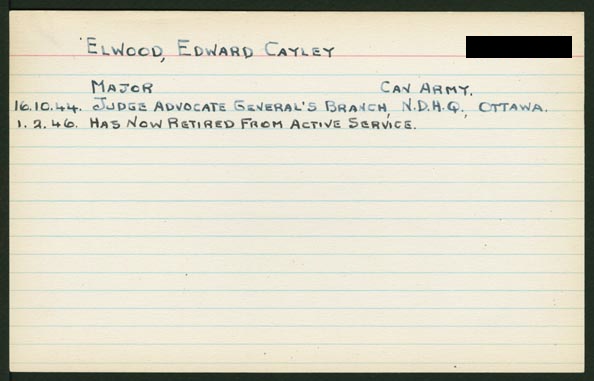 ELWOOD, EDWARD CAYLEY
MAJOR CAN ARMY.
16.10.44. JUDGE ADVOCATE GENERAL'S BRANCH, N.D.H.Q., OTTAWA.
1.2.46. HAS NOW RETIRED FROM ACTIVE SERVICE.